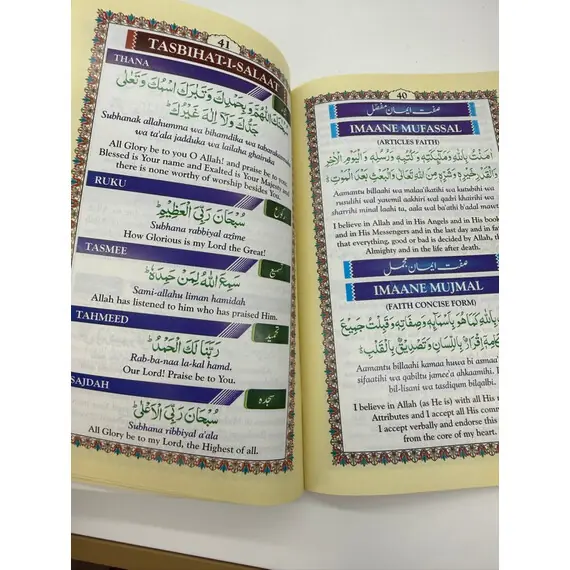 41
TASBIHAT-I-SALAAT
THANA
سُبْحَانَكَ اللّٰهُمَّ وَبِحَمْدِكَ وَتَبَارَكَ اسْمُكَ وَتَعَالٰى
جَدُّكَ وَلَا اِلٰهَ غَيْرُكَ
Subhanak allahumma wa bihamdika wa tabarakasmuka
wa ta'ala jadduka wa lailaha ghairuka
All Glory be to you O Allah! and praise be to you,
Blessed is Your name and Exalted is Your Majesty and
there is none worthy of worship besides You.
RUKU
رکوع
سُبْحَانَ رَبِّیَ الْعَظِيْمِ
Subhana rabbiyal azime
How Glorious is my Lord the Great!
TASMEE
تسمیع
سَمِعَ اللّٰهُ لِمَنْ حَمِدَهٗ
Sami-allahu liman hamidah
Allah has listened to him who has praised Him.
TAHMEED
تحمید
رَبَّنَا لَكَ الْحَمْدُ
Rab-ba-naa la-kal hamd.
Our Lord! Praise be to You.
SAJDAH
سجدہ
سُبْحَانَ رَبِّیَ الْاَعْلٰى
Subhana ribbiyal a'ala
All Glory be to my Lord, the Highest of all.
40
صفت ایمان مفصّل
IMAANE MUFASSAL
(ARTICLES FAITH)
اٰمَنْتُ بِاللّٰهِ وَمَلٰٓئِكَتِهٖ وَكُتُبِهٖ وَرُسُلِهٖ وَالْيَوْمِ الْاٰخِرِ
وَالْقَدْرِ خَيْرِهٖ وَشَرِّهٖ مِنَ اللّٰهِ تَعَالٰى وَالْبَعْثِ بَعْدَ الْمَوْتِ
Aamantu billaahi wa malaa'ikatihi wa kutubihi wa
rusulihi wal yawmil aakhiri wal qadri khairihi wa
sharrihi minal laahi ta, aala wal ba'athi b'adal mawt
I believe in Allah and in His Angels and in His book
and in His Messengers and in the last day and in fa
that everything, good or bad is decided by Allah, t
Almighty and in the life after death.
صفت ایمان مجمل
IMAANE MUJMAL
(FAITH CONCISE FORM)
بِاللّٰهِ كَمَا هُوَ بِاَسْمَآئِهٖ وَصِفَاتِهٖ وَقَبِلْتُ جَمِيْعَ
اِقْرَارٌ بِاللِّسَانِ وَتَصْدِيْقٌ بِالْقَلْبِ
Aamantu billaahi kamaa huwa bi asmaa'
sifaatihi wa qabiltu jamee'a ahkaamihi. I
bil-lisani wa tasdiqum bilqalbi.
I believe in Allah (as He is) with all His n
Attributes and I accept all His comm
I accept verbally and endorse this
from the core of my heart.